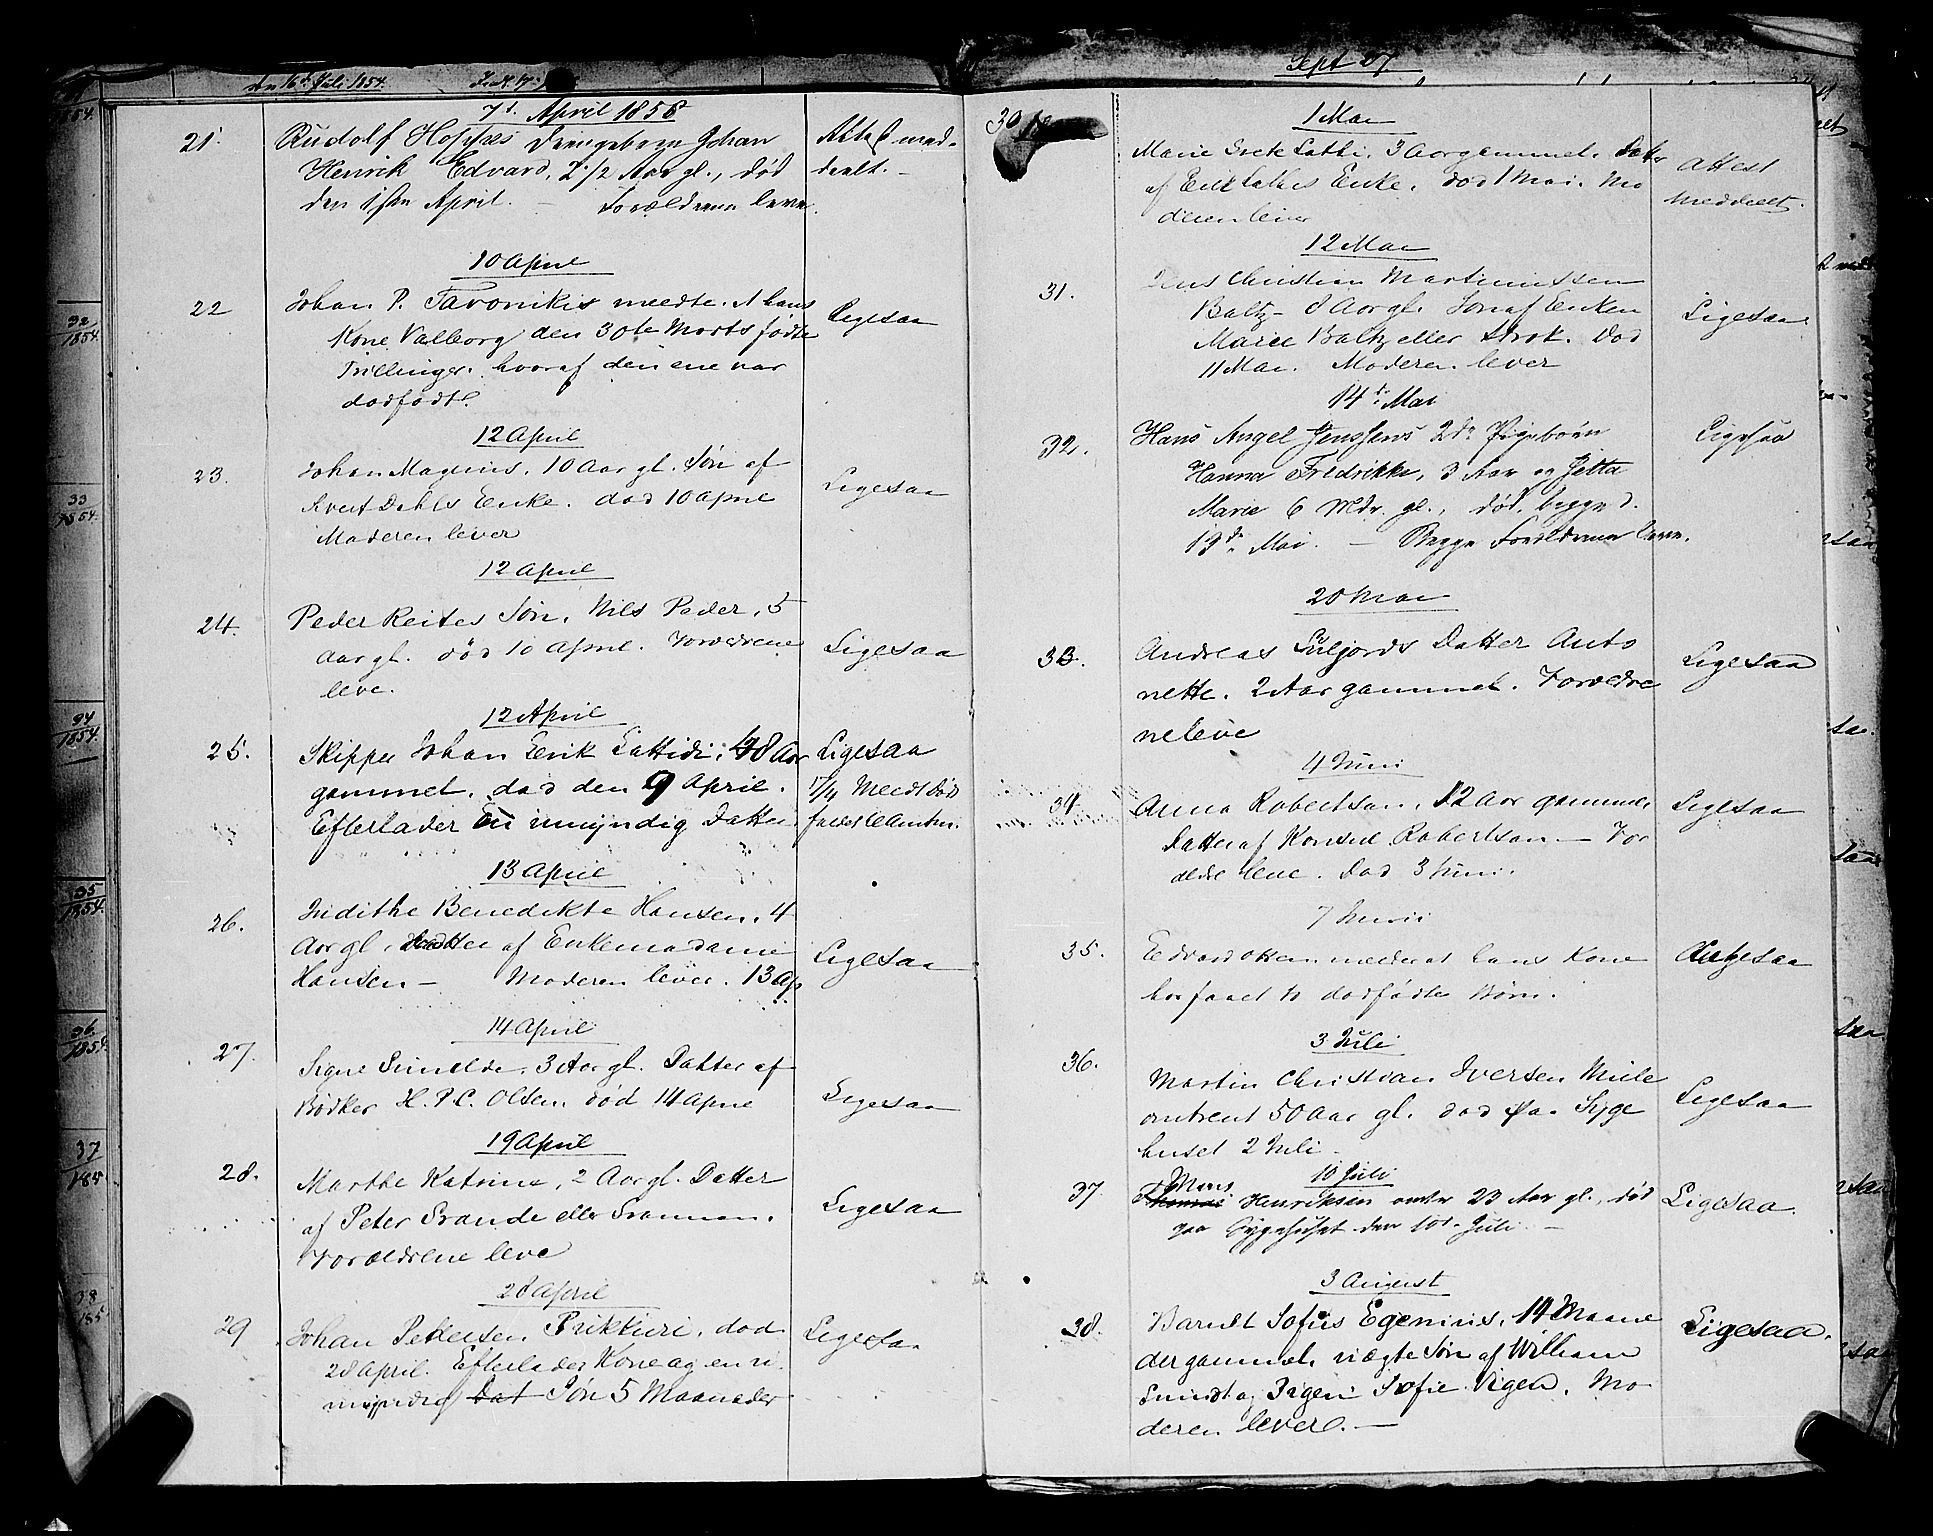 7d. April 1858
21. Rudolf Hoppes Drengebarn Johan Attest med-
Henrik Edvard, 2 1/2 Aar gl., død deelt. -
den 1ste April. - Forældrene leve.
10 April
22 Johan P. meedte. At hans Ligesaa
Kone Valborg den 30te Marts fødte
Trillinger. hvoraf den ene var
dødfødt.
12 April
23. Johan Magnus, 10 Aar gl. Søn af Ligesaa
Dahls Enke. død 10 April
Moderen lever
12 April
24. Peder Reites Søn, Nils Peder, 5 Ligesaa
Aar gl. død 10 April. Forældrene
leve.
12 April
25. Skipper Johan Erik Lattidi, 48 Aar Ligesaa
gammel. død den 9 April. 17/4 Meedt
Efterlader En umyndig Datter.
13 April
26. Indithe Benedikte Hansen, 4 Ligesaa
Aar gl. Datter af Enkemadame
Hansen - Moderen lever. 13 Ap
14 April
27. Signe 3 Aar gl. Datter af Ligesaa
Bødker H. P. C. Olsen. død 14 April
19 April
28. Marthe Katrine, 2 Aar gl. Datter Ligesaa
af Peter Grande eller
Forældrene leve
28 April
29 Johan Pettersen død Ligesaa
28 April. Efterlader Kone og en u
myndig Dat Søn 5 Maaneder
30 1 Mai
Marie Grete Lathi, 3 Aar gammel. Datter Attest
af Erik Lathis Enke. død 1 Mai. Mo meddeelt.
deren lever
12 Mai
31. Jens Christian Martinussen Ligesaa
Baltz - 8 Aar gl. Søn af Enken
Marie Baltz eller død
11 Mai. Moderen lever
14d. Mai
32. Hans Angel Jensens 2de Pigebørn Ligesaa
Hanna Fredrikke, 3 Aar og Jetta
Marie 6 Mdr. gl., død begge d.
13de Mai. - Begge Forældrene leve.
20 Mai
33. Andreas Datter Anto Ligesaa
nette. 2 Aar gammel. Forældre
ne leve
4 Juni
34 Anna Robertson. 12 Aar gammel Ligesaa
Datter af Konsul Robertson - For
ældre leve. død 3 Juni.
7 Juni
35. Edvard Olsen meder at hans Kone Ligesaa
har faaet to dødfødte Børn.
3 Juli
36. Martin Christian Iversen Ligesaa
omtrent 50 Aar gl. død paa Syge
huset 2 Juli.
10 Juli
37. Mons Henriksen omtr 23 Aar gl., død Ligesaa.
paa Sygehuset den 10d. Juli -
3 August
38. Barndt Sofus Egenius, 14 Maane Ligesaa.
der gammel. uægte Søn af William
Smidt og Pigen Sofie Vigen. Mo
deren lever. -